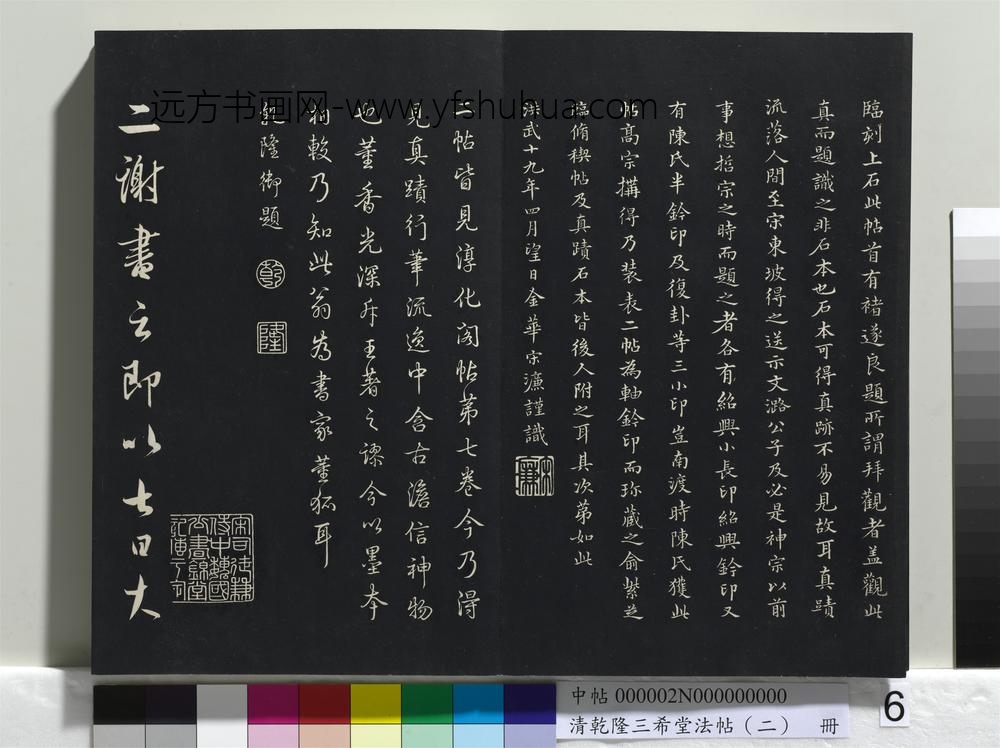 臨刻上石此帖首有褚遂良題所謂拜觀者盖觀此
真而題識之非石本也石本可得真跡不易見故耳真蹟
流落人間至宗東坡得之送示文潞公子及必是神宗以前
事想哲宗之時而題之者各有紹興小長印紹興鈐印又
有陳氏半鈐印及復卦等三小印豈南渡時陳氏獲此
帖高宗搆得乃装表二帖為軸鈐印而珎蔵之俞紫芝
臨脩禊帖及真蹟石本皆後人附之耳其次第如此
洪武十九年四月望日金華宋濂謹識
二帖皆見淳化閣帖第七卷今乃得
見真蹟行筆流逸中含古澹信神物
也董香光深斥王著之謬今以墨本
相較乃知此翁為書家董狐耳
乾隆御題
乾
隆
二謝書云即以七日大
远方书画网-www.yfshuhua.com
中帖 000002N000000000
清乾隆三希堂法帖（二） 冊
6